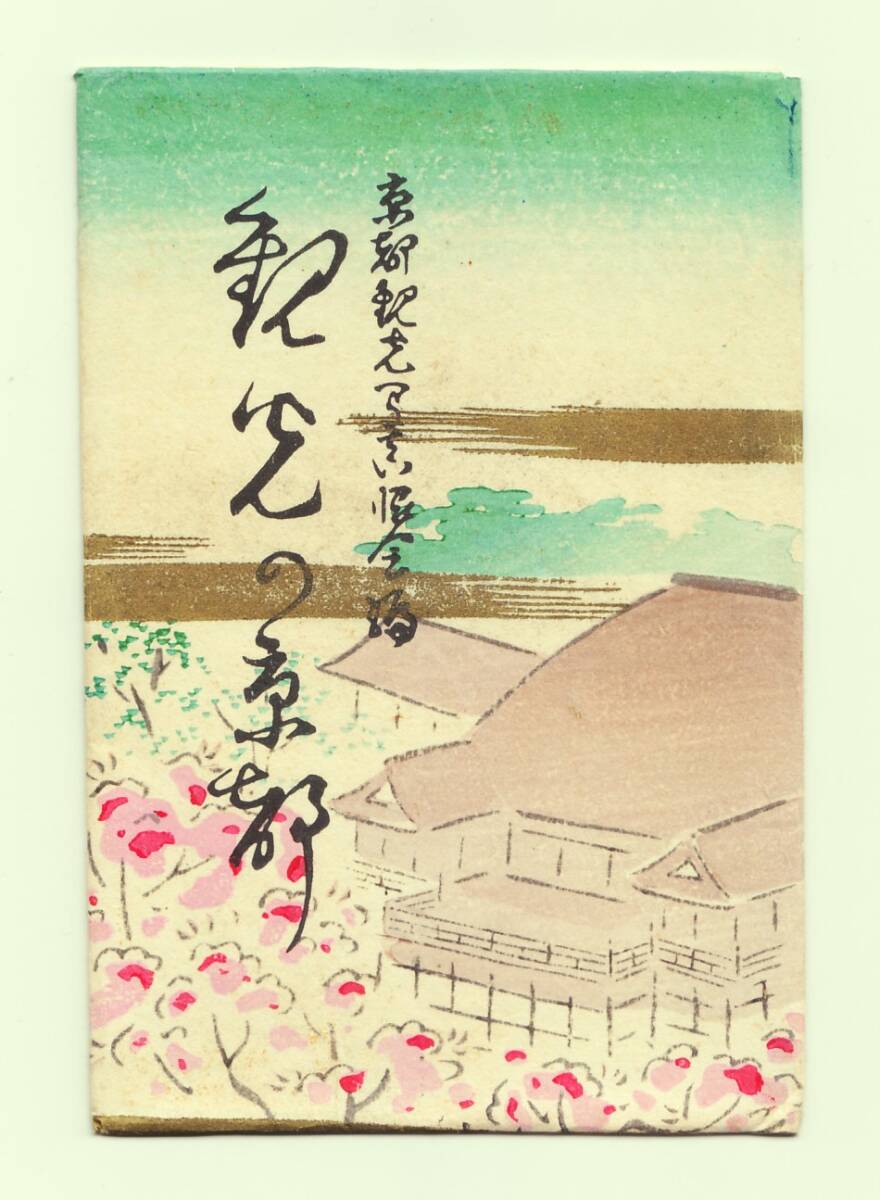 京都観光写真聯合会編
観光の京都